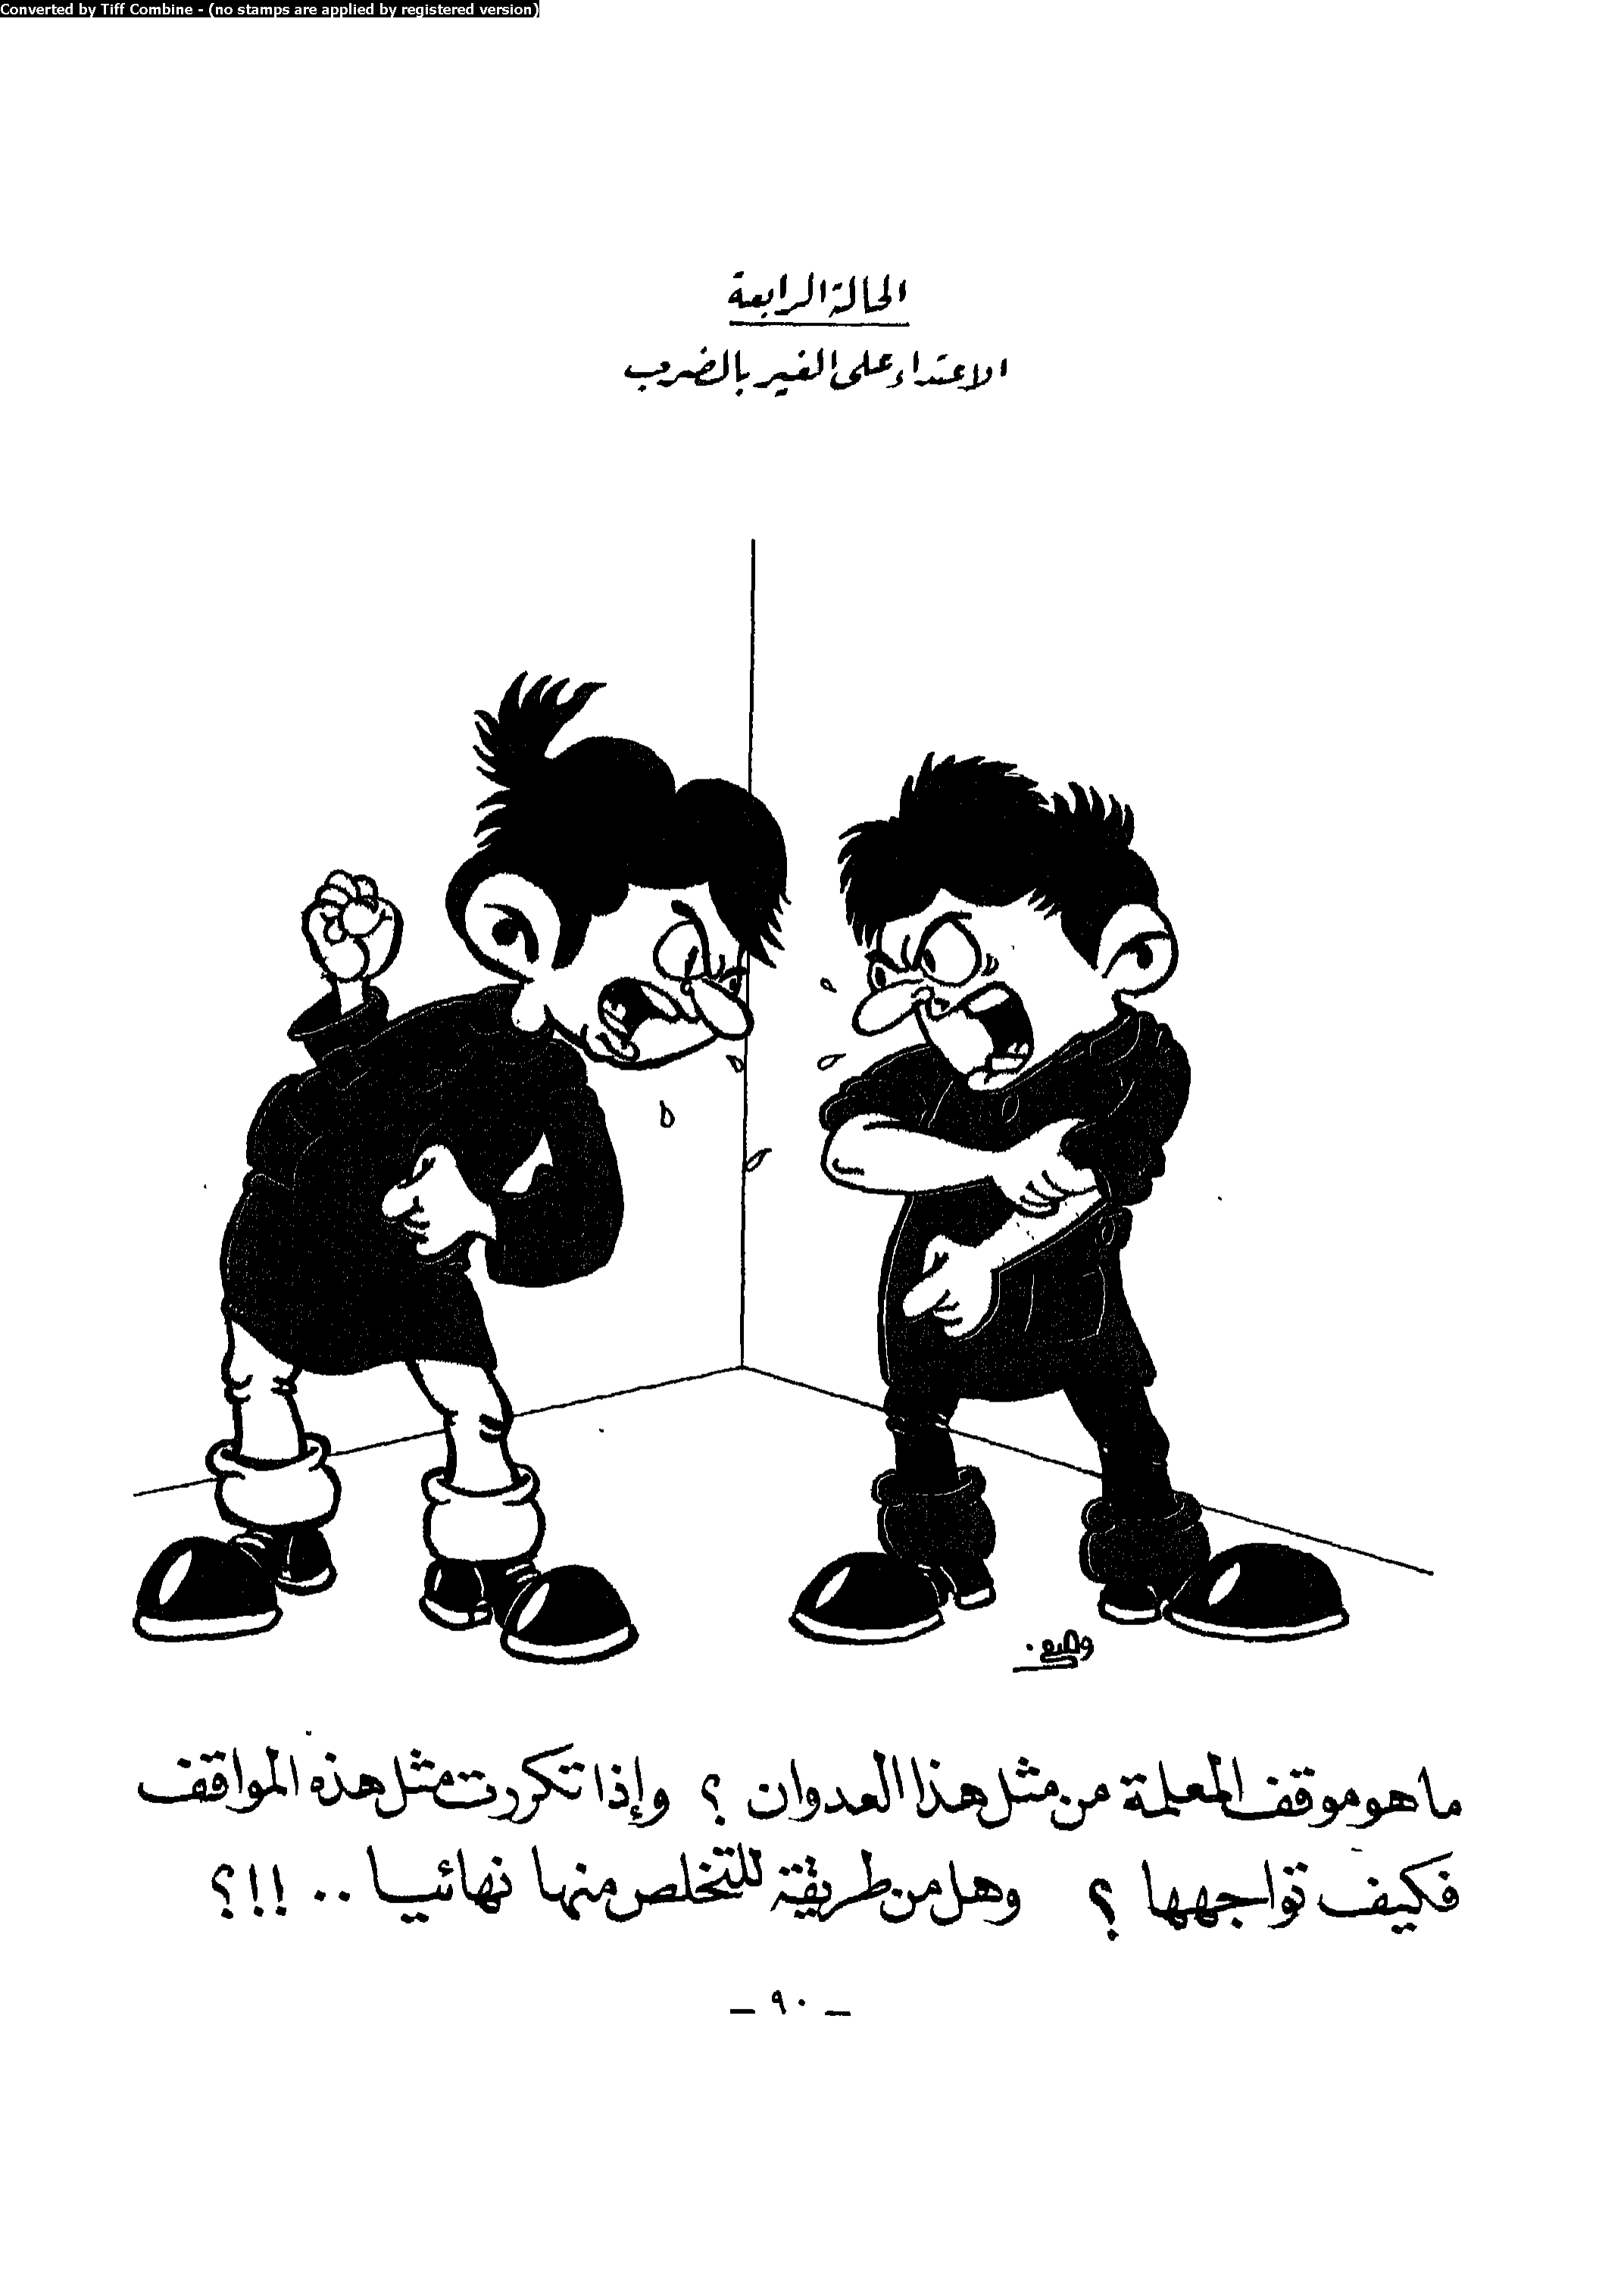 Converted by Tiff Combine - (no stamps are applied by registered version)
الحالة الرابعة
الاعتداء على الغير بالضرب
ما هو موقف المعلمة من مثل هذا العدوان ؟ وإذا تكررت مثل هذه المواقف
فكيف تواجهها ؟ وهل من طريقة للتخلص منها نهائيا .. !!؟
– ٩٠ –